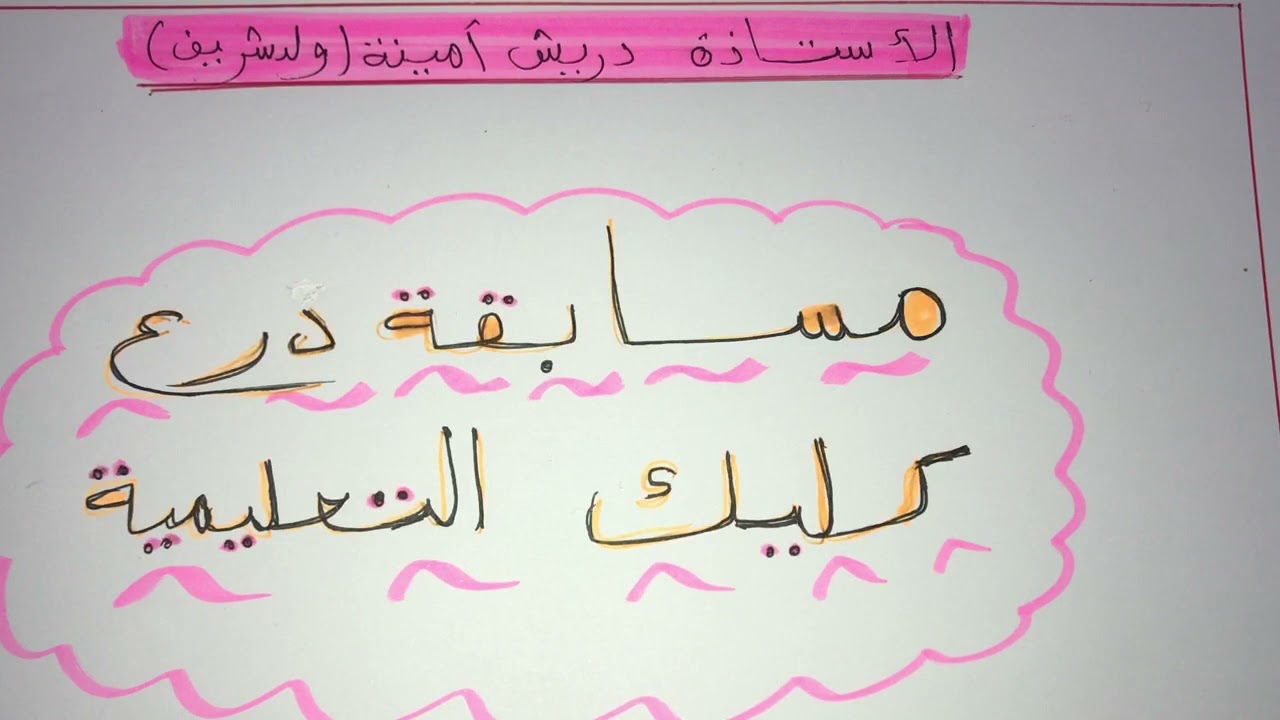 الأستاذة دربيش أمينة (ولدشريف)
مسابقة درع
كليك التعليمية